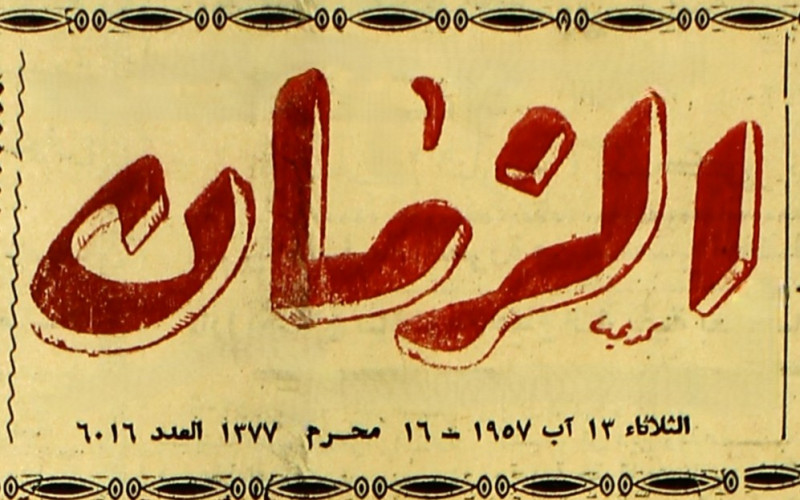 الزمان
الثلاثاء ١٣ آب ١٩٥٧ - ١٦ محرم ١٣٧٧ العدد ٦٠١٦